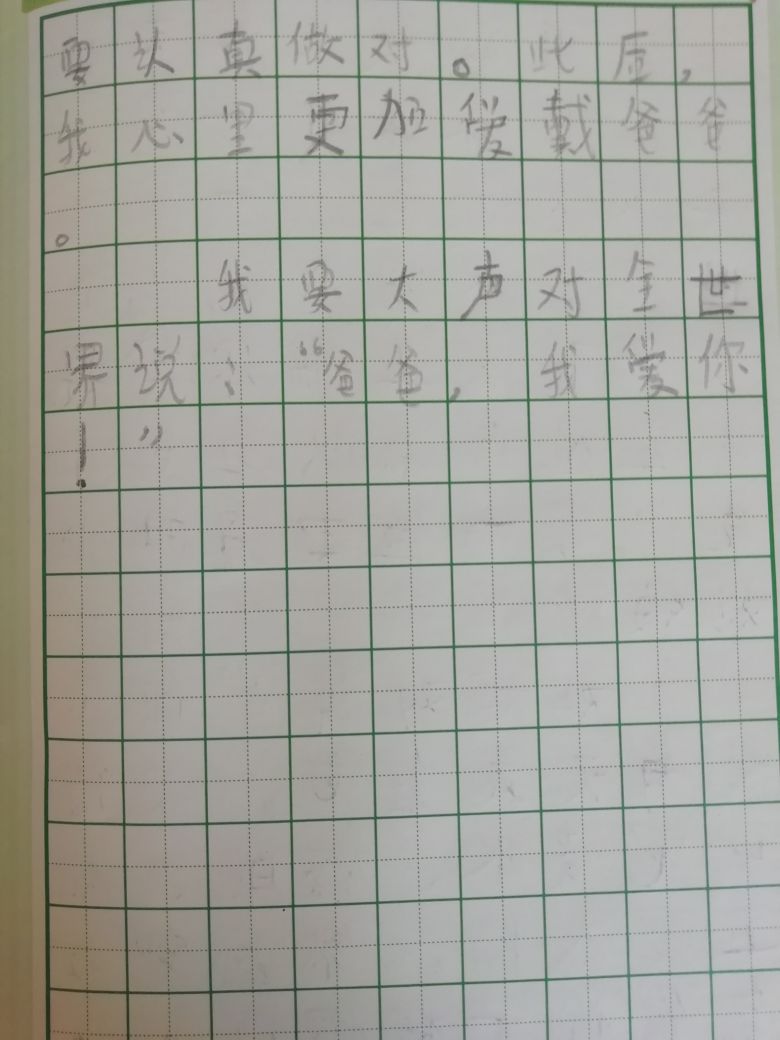 要认真做对。此后,
我心里更加爱戴爸爸
。
我要大声对全世
界说:“爸爸,我爱你
!”